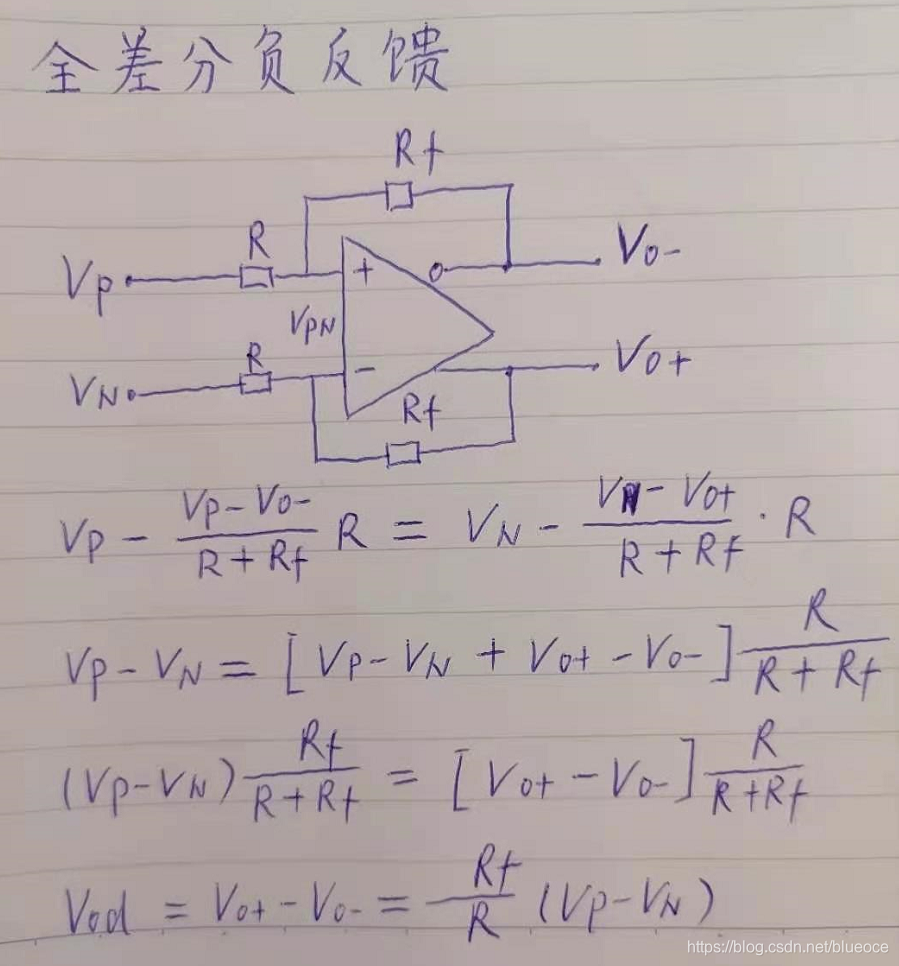 全差分负反馈
Rf
R
Vp
+
Vo-
VPN
R
VN
-
Vo+
Rf
Vp - \frac{Vp-Vo-}{R+Rf} R = VN - \frac{VN-Vo+}{R+Rf} · R
Vp-VN = [Vp-VN+Vo+-Vo-] \frac{R}{R+Rf}
(Vp-VN) \frac{Rf}{R+Rf} = [Vo+-Vo-] \frac{R}{R+Rf}
Vod = Vo+-Vo- = \frac{Rf}{R} (Vp-VN)
https://blog.csdn.net/blueoce